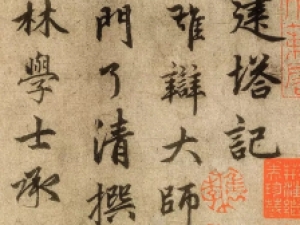 建塔記
雄辯大師
門了清撰
林學士承